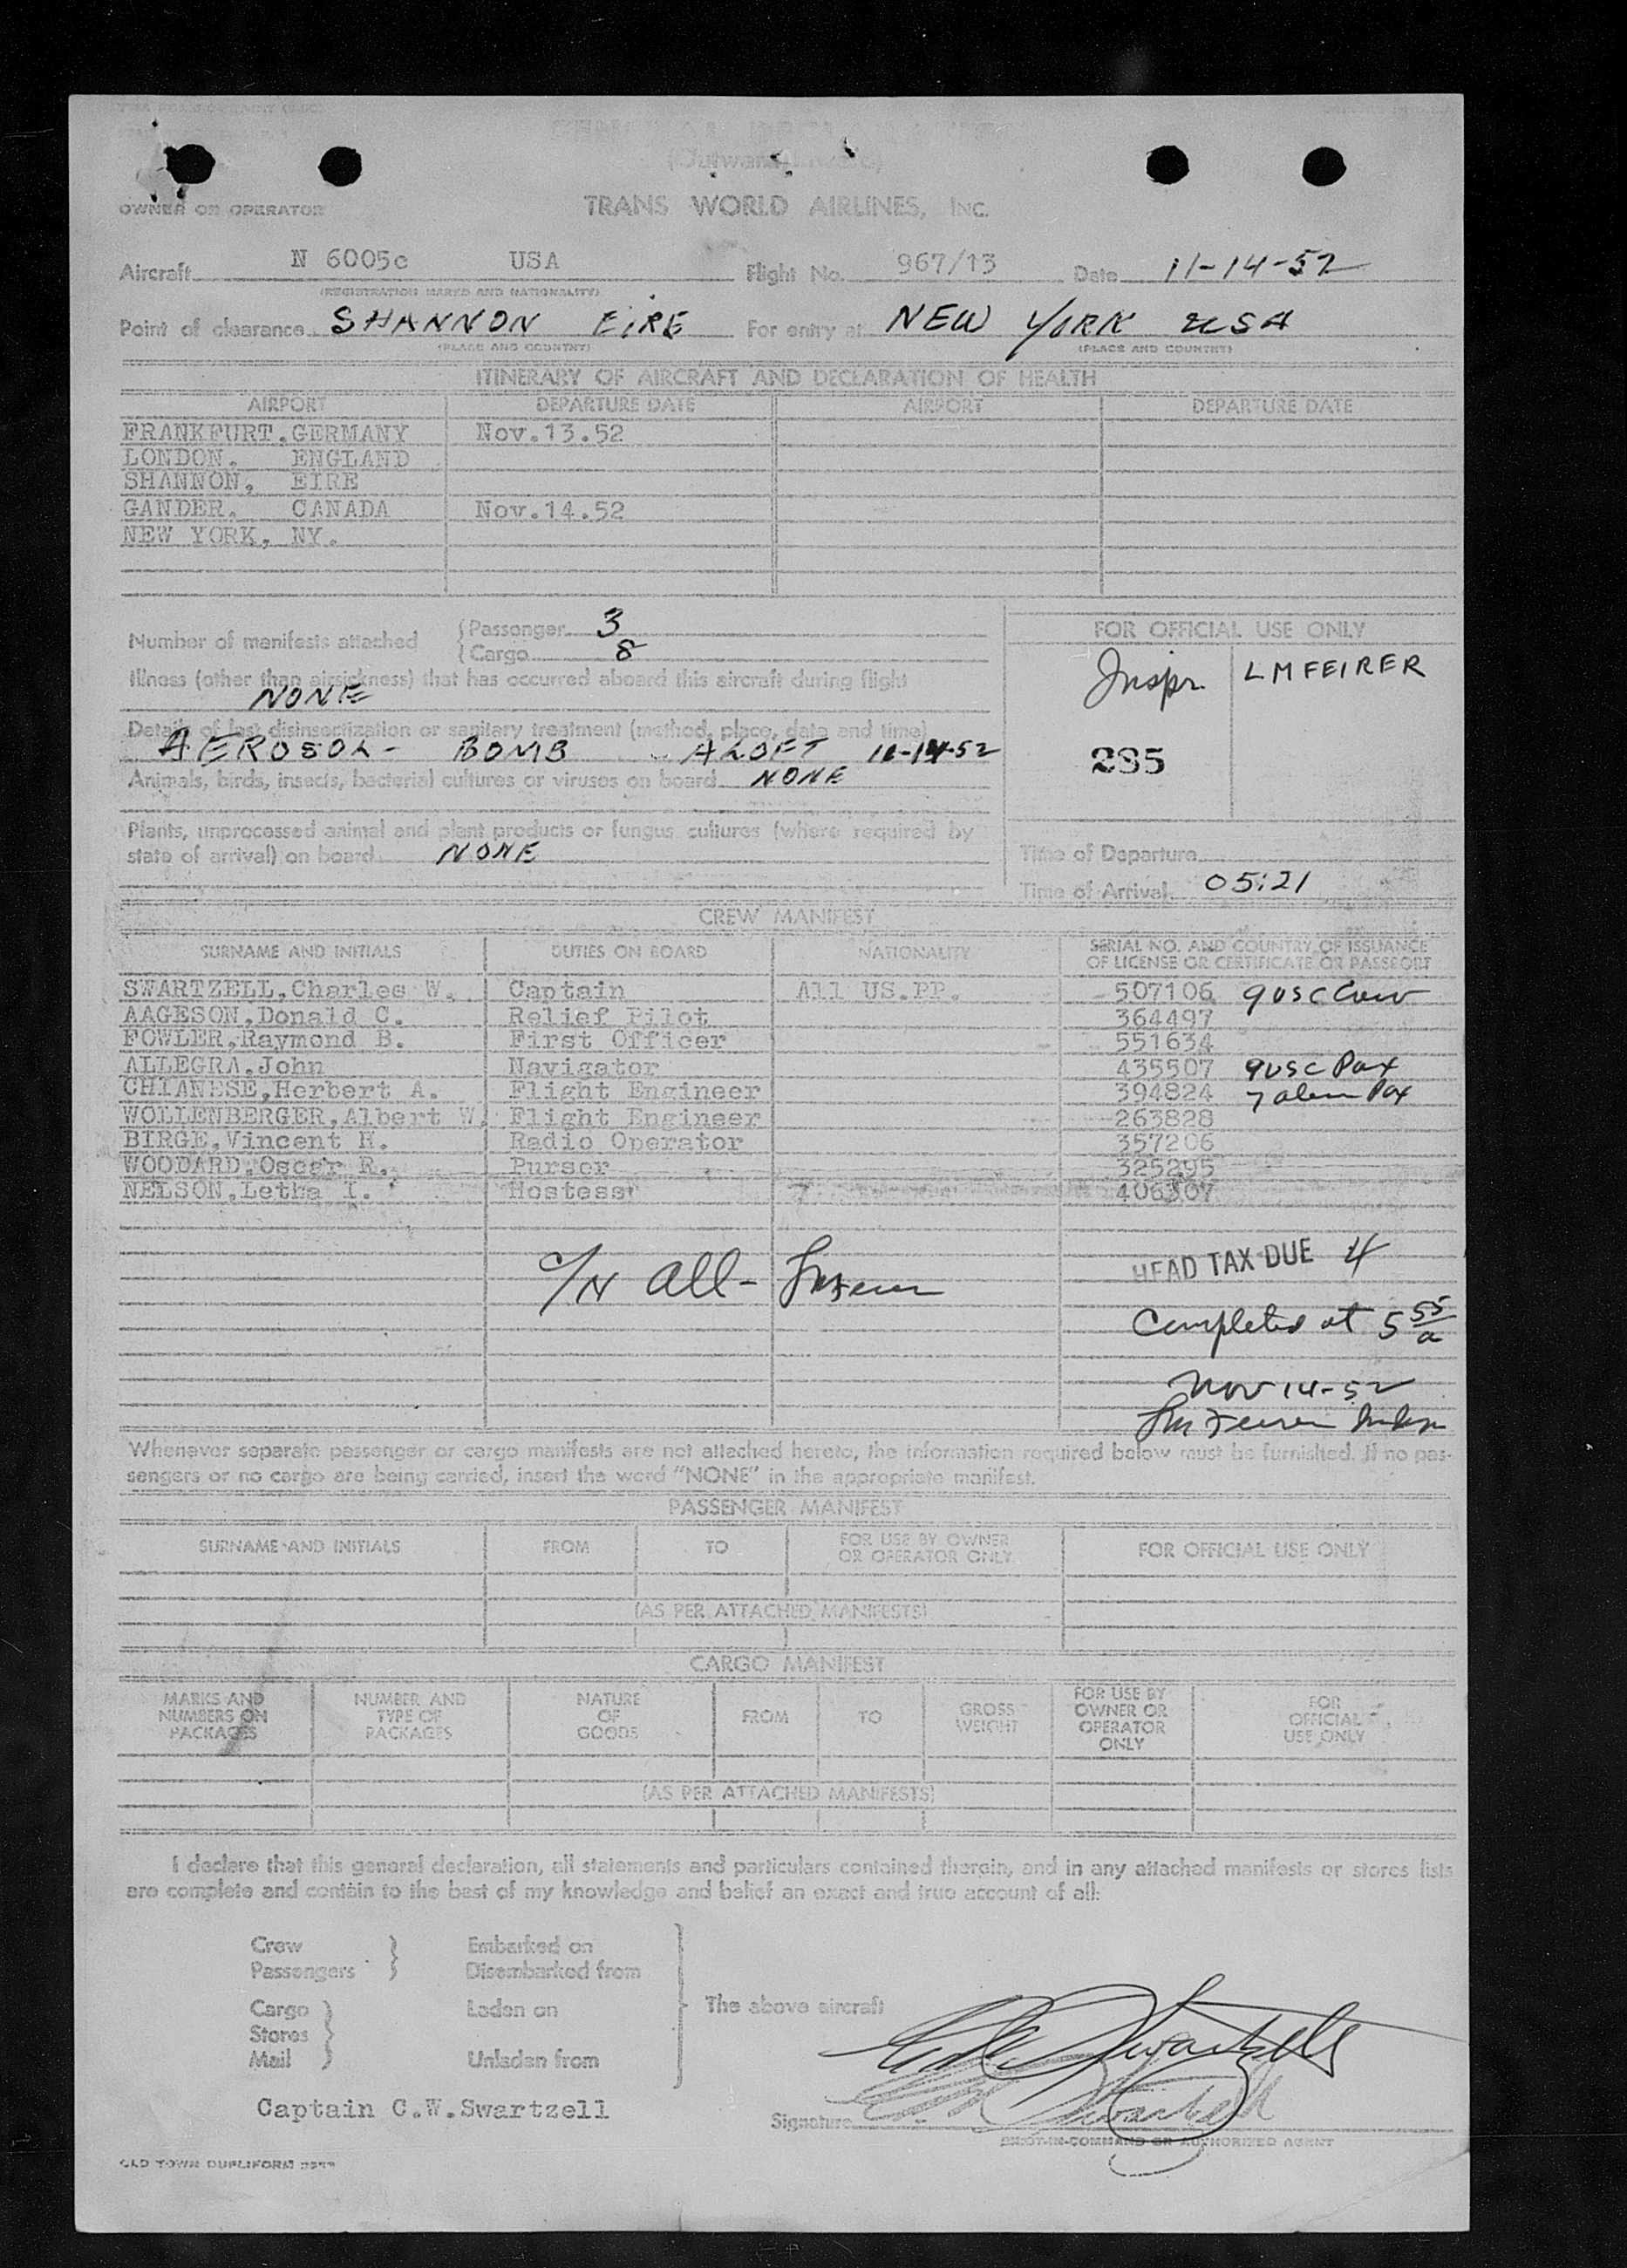 GENERAL DECLARATION
(Outward/Inward)
OWNER OR OPERATOR TRANS WORLD AIRLINES, INC.
Aircraft N 6005c USA Flight No. 967/13 Date 11-14-52
(REGISTRATION MARKS AND NATIONALITY)
Point of clearance SHANNON EIRE For entry at NEW YORK USA
(PLACE AND COUNTRY) (PLACE AND COUNTRY)
ITINERARY OF AIRCRAFT AND DECLARATION OF HEALTH
AIRPORT DEPARTURE DATE AIRPORT DEPARTURE DATE
FRANKFURT,GERMANY Nov.13.52
LONDON, ENGLAND
SHANNON, EIRE
GANDER, CANADA Nov.14.52
NEW YORK, NY.
Number of manifests attached
Passenger 3
Cargo 8
Illness (other than airsickness) that has occurred aboard this aircraft during flight
NONE
Details of last disinsectization or sanitary treatment (method, place, date and time)
AEROSOL- BOMB ALOFT 11-14-52
Animals, birds, insects, bacterial cultures or viruses on board NONE
Plants, unprocessed animal and plant products or fungus cultures (where required by
state of arrival) on board NONE
FOR OFFICIAL USE ONLY
Inspr. LMFEIRER
285
Time of Departure
Time of Arrival 05:21
CREW MANIFEST
SURNAME AND INITIALS DUTIES ON BOARD NATIONALITY SERIAL NO. AND COUNTRY OF ISSUANCE
OF LICENSE OR CERTIFICATE OR PASSPORT
SWARTZELL,Charles W. Captain All US.PP. 507106 9 USC Crew
AAGESON,Donald C. Relief Pilot 364497
FOWLER,Raymond B. First Officer 551634
ALLEGRA,John Navigator 435507 9 USC Pax
CHIANESE,Herbert A. Flight Engineer 394824 7 alien Pax
WOLLENBERGER,Albert W. Flight Engineer 263828
BIRGE,Vincent H. Radio Operator 357206
WOODARD,Oscar R. Purser 325295
NELSON,Letha I. Hostess 406307
HEAD TAX DUE 4
C/N all-
Completed at 5 55/a
Nov 14-52
Whenever separate passenger or cargo manifests are not attached hereto, the information required below must be furnished. If no pas-
sengers or no cargo are being carried, insert the word "NONE" in the appropriate manifest.
PASSENGER MANIFEST
SURNAME AND INITIALS FROM TO FOR USE BY OWNER
OR OPERATOR ONLY FOR OFFICIAL USE ONLY
(AS PER ATTACHED MANIFESTS)
CARGO MANIFEST
MARKS AND
NUMBERS ON
PACKAGES
NUMBER AND
TYPE OF
PACKAGES
NATURE
OF
GOODS
FROM
TO
GROSS
WEIGHT
FOR USE BY
OWNER OR
OPERATOR
ONLY
FOR
OFFICIAL
USE ONLY
(AS PER ATTACHED MANIFESTS)
I declare that this general declaration, all statements and particulars contained therein, and in any attached manifests or stores lists
are complete and contain to the best of my knowledge and belief an exact and true account of all:
Crew Embarked on
Passengers Disembarked from
The above aircraft
Cargo Laden on
Stores
Mail Unladen from
Captain C.W.Swartzell
Signature
PILOT-IN-COMMAND OR AUTHORIZED AGENT
OLD TOWN DUPLIFORM